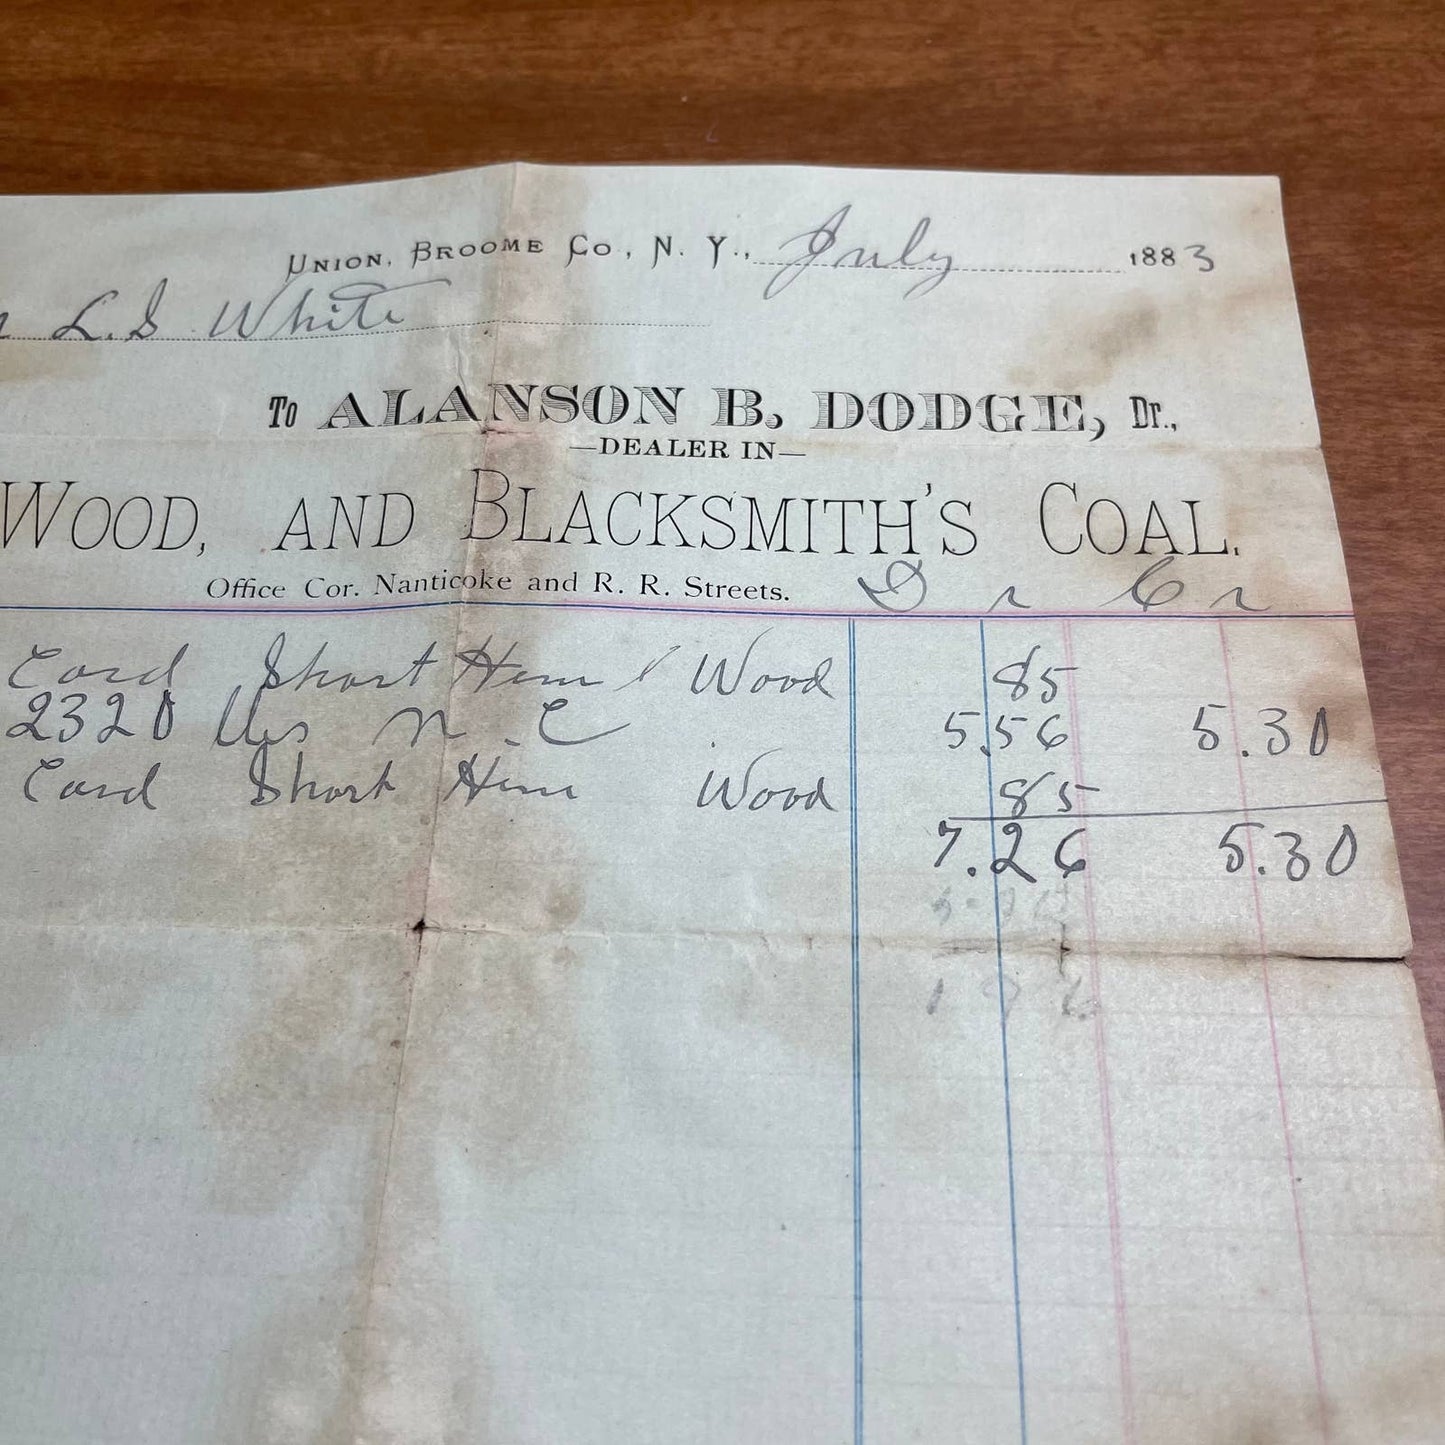 UNION, BROOME CO., N. Y., July 1883
L. S White
To ALANSON B. DODGE, Dr.,
—DEALER IN—
WOOD, AND BLACKSMITH'S COAL.
Office Cor. Nanticoke and R. R. Streets.
Dr Cr
Cord Short Hem Wood 85
2320 lbs N. C 5.56 5.30
Cord Short Hem Wood 85
7.26 5.30
1 9 6